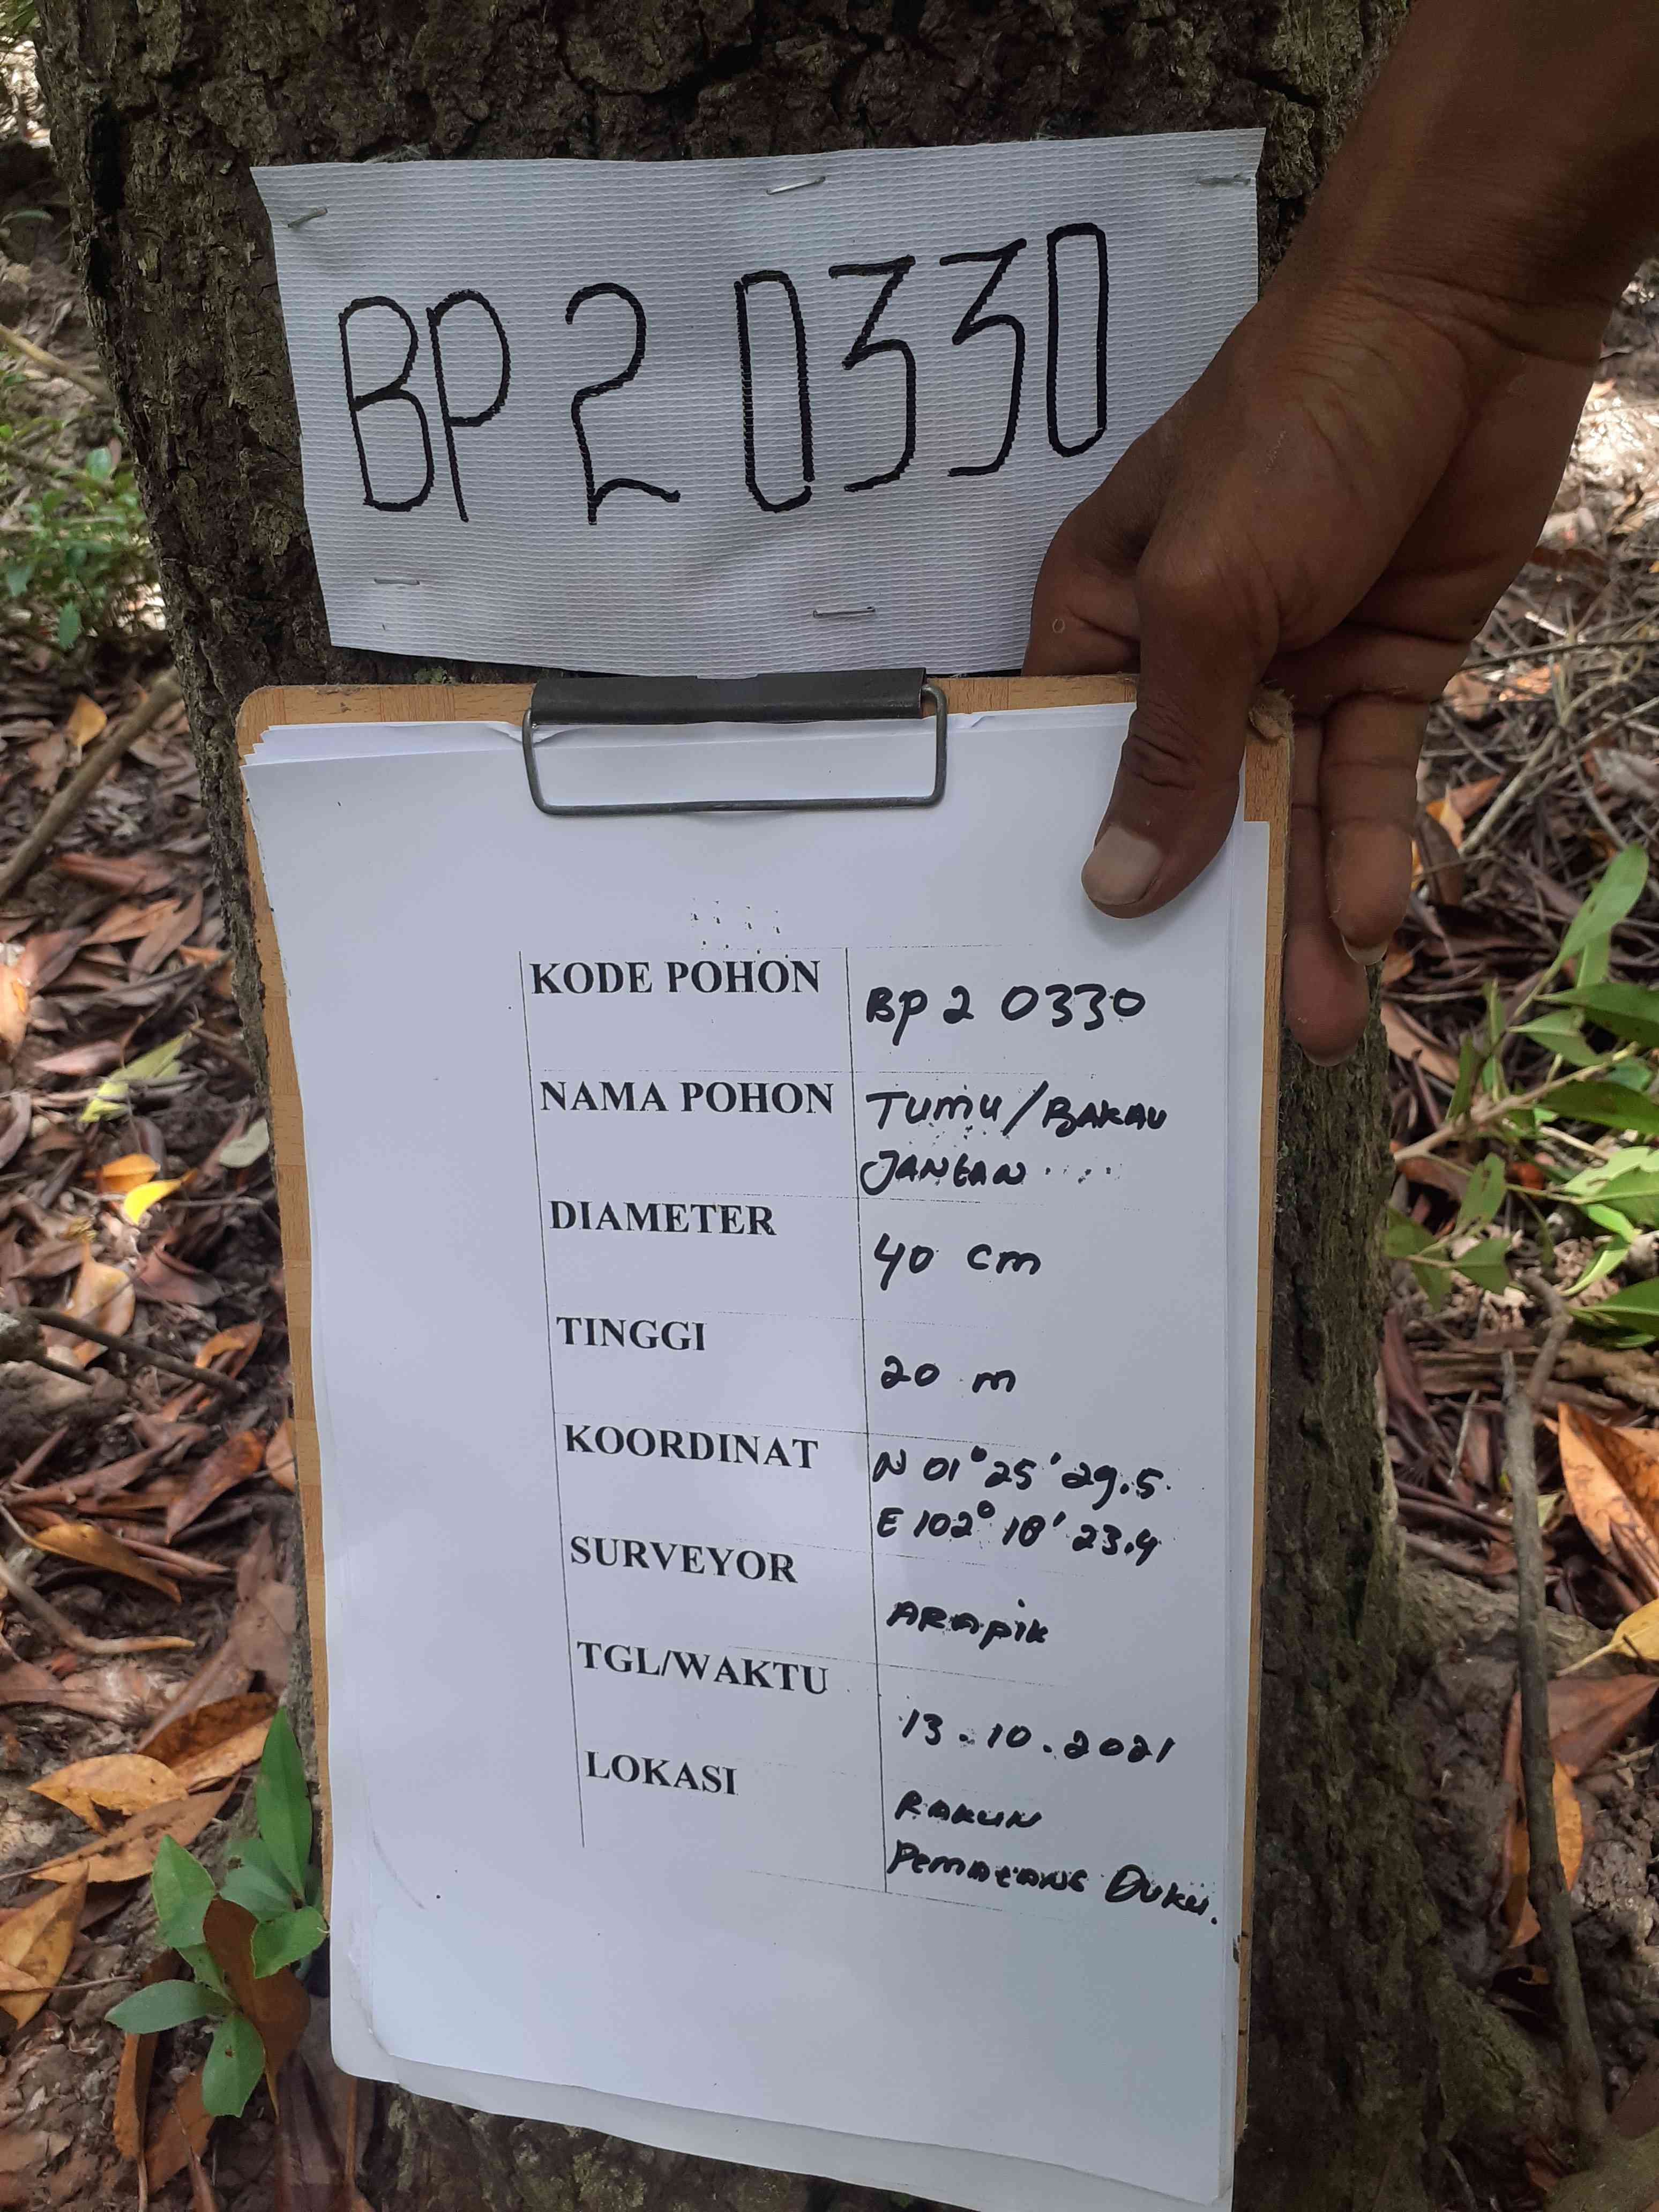 BP 2 0330
KODE POHON BP 2 0330
NAMA POHON TUMU/BAKAU
JANTAN
DIAMETER 40 cm
TINGGI 20 m
KOORDINAT N 01° 25' 29.5
E 102° 18' 23.4
SURVEYOR ARAPIK
TGL/WAKTU 13.10.2021
LOKASI RAKUN
PEMATANG DUKU.